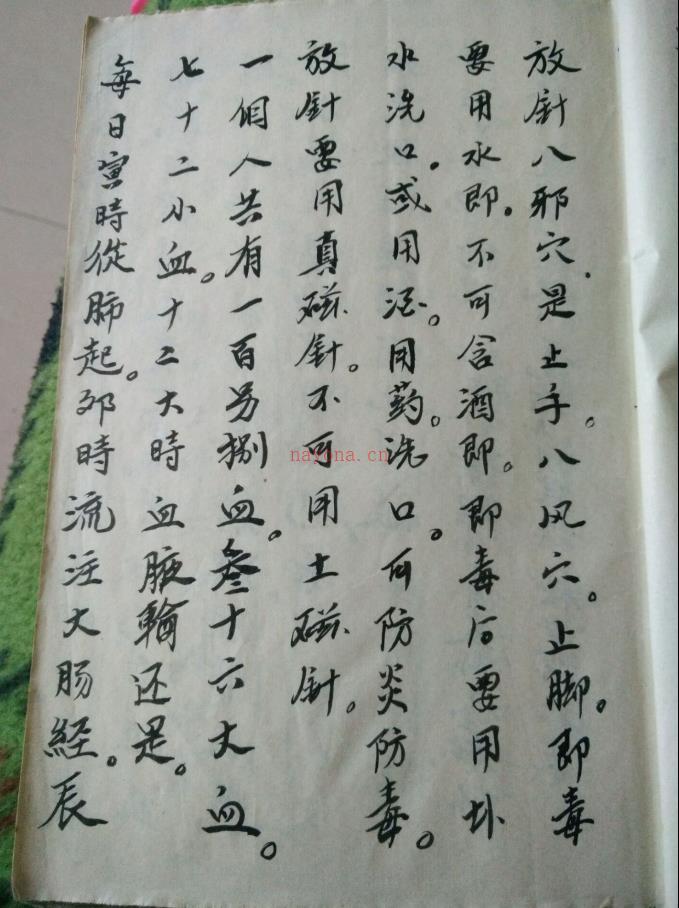 放針八邪穴.是止手。八风穴。止脚。即毒
要用水即。不可含酒即。即毒后要用卦
水洗口。或用酒。用葯。洗口。可防炎防毒。
放針要用真磁針。不可用土磁針。
一個人共有一百另捌血。叁十六大血。
七十二小血。十二大時血腋輪还是。
每日寅時從肺起。卯時流注大肠経。辰
nayona.cn